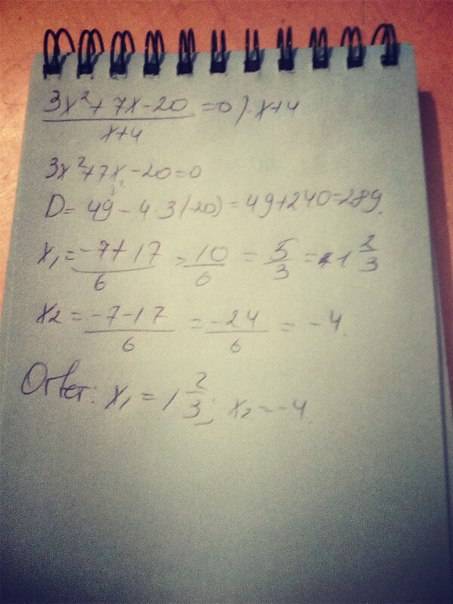 3x²+7x-20 / x+4 =0 /·x+4
3x²+7x-20=0
D= 49-4·3(-20)=49+240=289.
x₁= -7+17 / 6 = 10/6 = 5/3 = 1 2/3
x2= -7-17 / 6 = -24/6 = -4.
Ответ: x₁=1 2/3; x₂=-4.